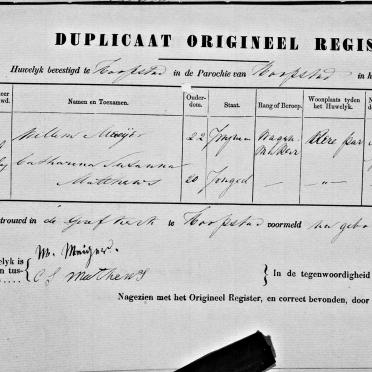 DUPLICAAT ORIGINEEL REGIS
Huwelyk bevestigd te Hoopstad in de Parochie van Hoopstad in h
Namen en Toenamen. Ouder-dom. Staat. Rang of Beroep. Woonplaats tyden het Huwelyk.
Willem Meijer 22 Jongman Wagen
Maker
Catharina Susanna
Matthews 20 Jonged — „ —
trouwd in de Geref Kerk te Hoopstad voormeld na gebo
W. Meijer.
elyk is
n tus-
C S Matthews
In de tegenwoordigheid
Nagezien met het Origineel Register, en correct bevonden, door